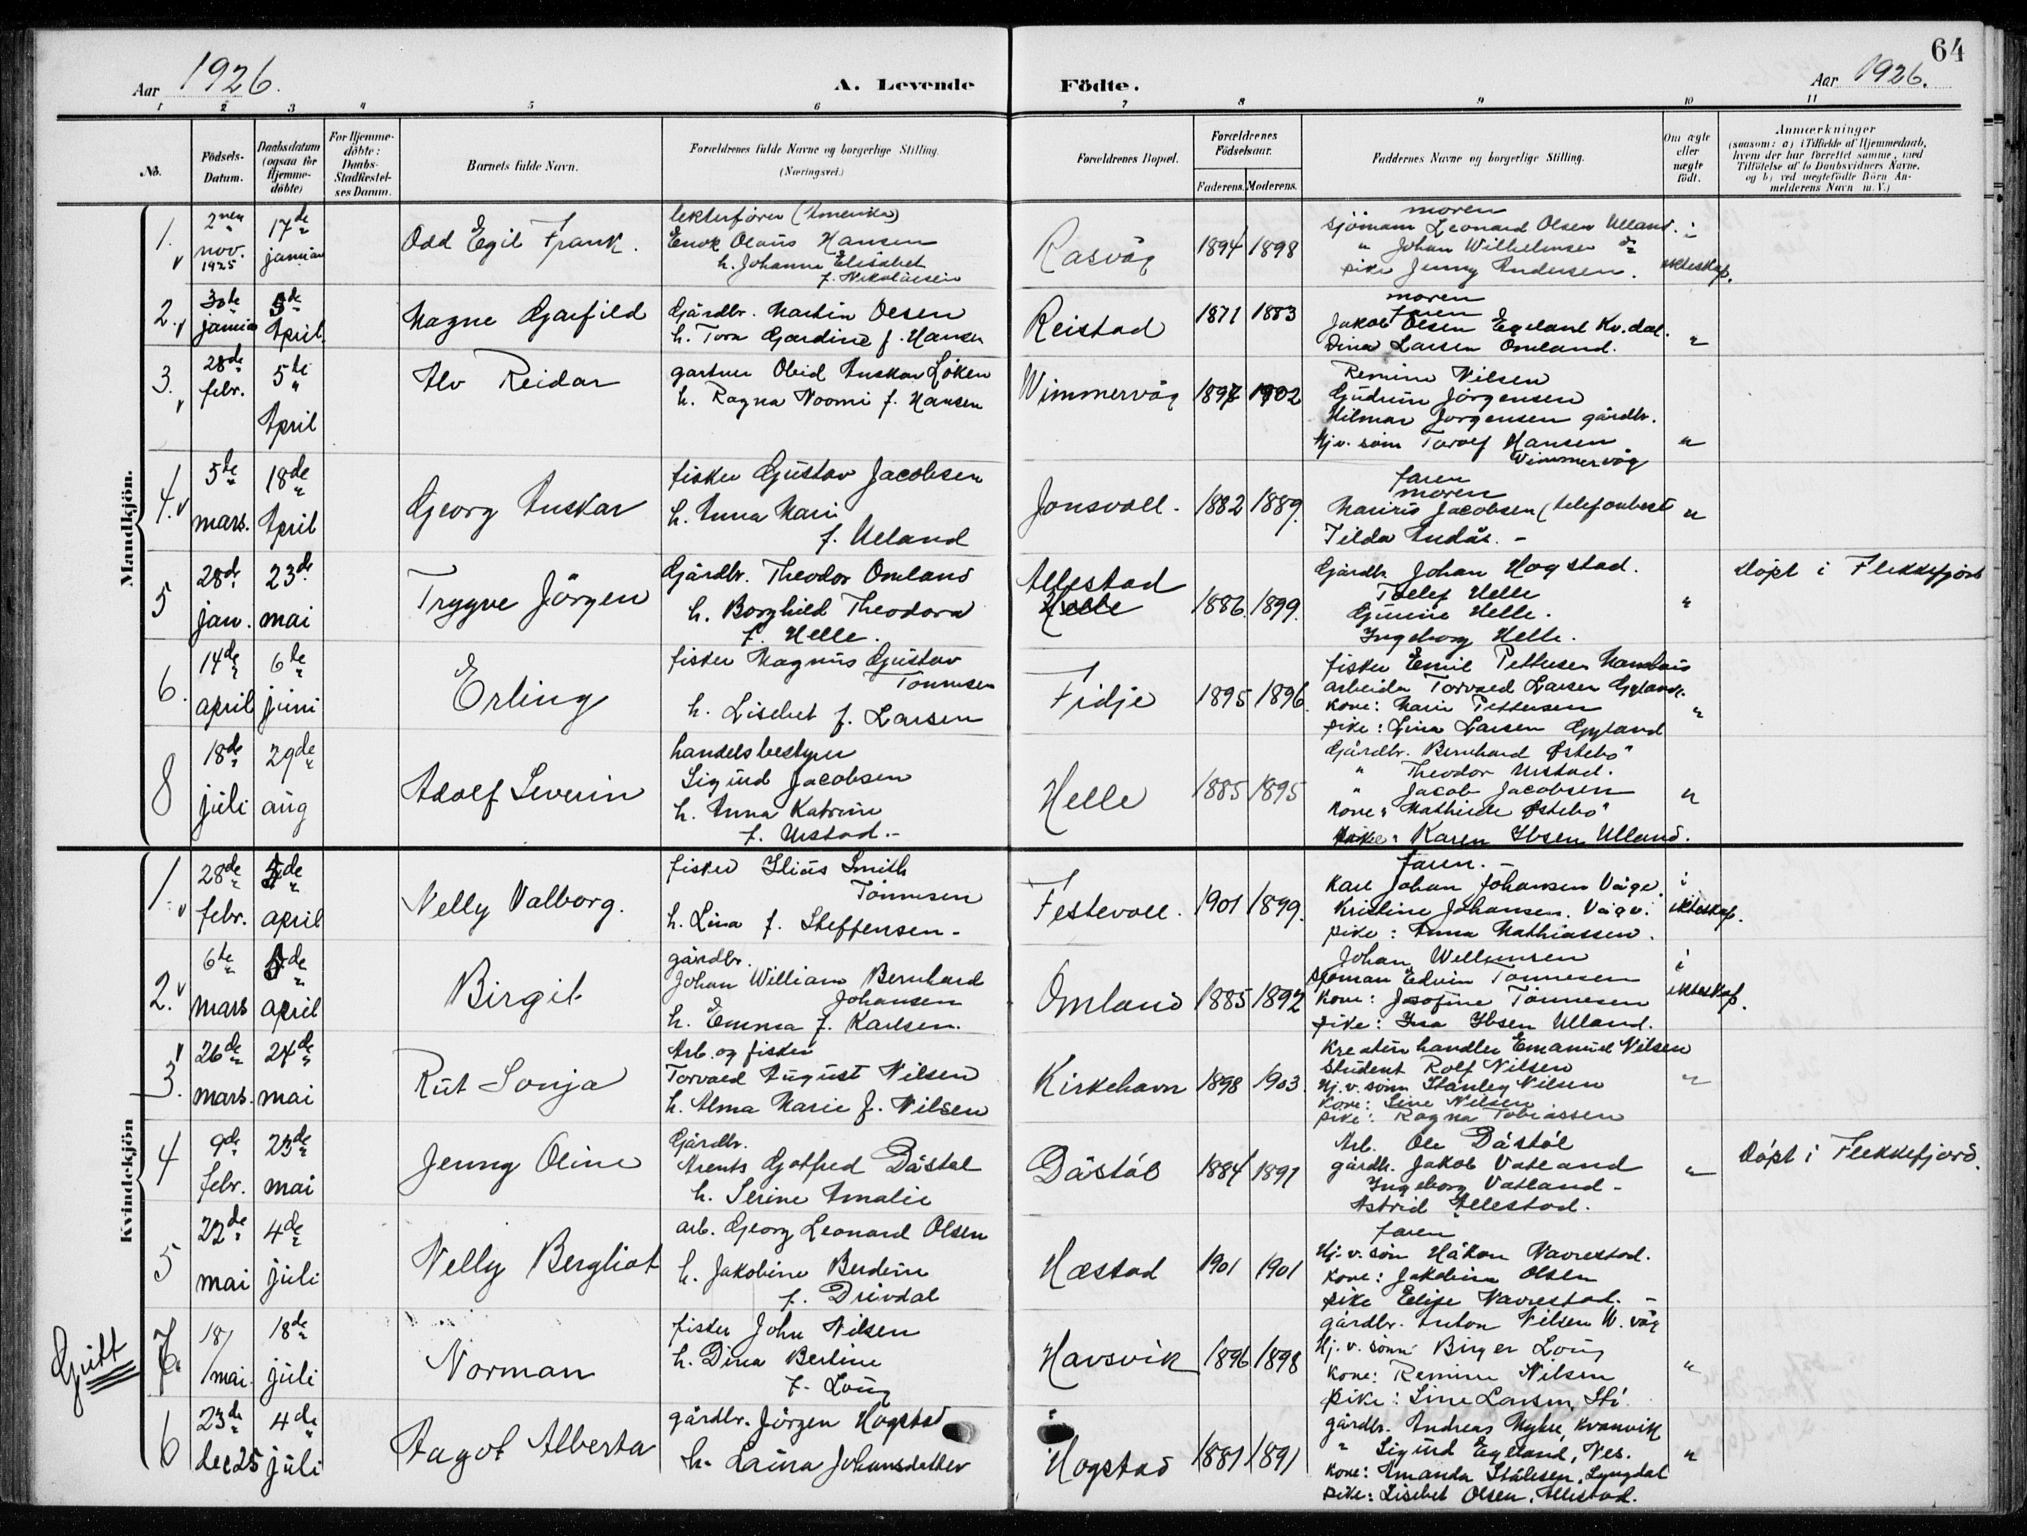 64
Aar 1926. A. Levende Födte. Aar 1926.
1 2 3 4 5 6 7 8 9 10 11
No.
Födsels-Datum.
Daabsdatum (ogsaa for Hjemme-döbte)
For Hjemme-döbte: Daabs-Stadfæstel-ses Datum.
Barnets fulde Navn.
Forældrenes fulde Navne og borgerlige Stilling.
(Næringsvei.)
Forældrenes Bopæl.
Forældrenes Födselsaar.
Faderens. Moderens.
Faddernes Navne og borgerlige Stilling.
Om ægte eller uægte födt.
Anmærkninger
(saasom: a) i Tilfælde af Hjemmedaab,
hvem der har forrettet samme, med
Tilföielse af to Daabsvidners Navne,
og b) ved uægtefödte Börn An-
melderens Navn m. V.)
Mandkjön.
1. 2nen nov. 1925 17de januar
Odd Egil Frank.
(Amerika)
Enok Olaus Hansen
h. Johanne Elisabet
f. Nikolaisen
Rasvåg 1894 1898
moren
sjömann Leonard Olsen Ulland.
" Johan Wilhelmsen
pike Jenny Andersen.
i ekteskap.
2. 30te januar 5de April.
Magne Garfild
Gårdbr. Martin Olsen
h. Tora Gardine f. Hansen
Reistad 1871 1883
moren
faren
Jakob Olsen Egeland Kv.dal.
Dina Larsen Omland.
"
3. 28de febr. 5te April
Alv Reidar
gartner Obid Anskar Löken
h. Ragna Noomi f. Hansen
Wimmervåg 1897 1902
Remine Nilsen
Gudrun Jörgensen
Hilmar Jorgensen gårdbr.
Hj.v. sönn Torolf Hansen
Wimmervåg
"
4. 5te mars. 18de April
Georg Anskar
fisker Gustav Jacobsen
h. Anna Mari
f. Ueland
Jonsvoll. 1882 1889.
faren
moren
Marius Jacobsen (telefonbest
Tilda Andås. -
"
5 28de jan. 23de mai
Trygve Jörgen
Gårdbr. Theodor Omland
h. Borghild Theodora
f. Helle.
Allestad
Helle
1886. 1899.
Gårdbr. Johan Hogstad.
Tollef Helle
Gunine Helle.
Ingeborg Helle.
"
Döpt i Flekkefjord
6. 14de april 6te juni
Erling
fisker Magnus Gustav
Tönnesen
h. Lisebet f. Larsen
Fidje 1895 1896.
fisker Emil Pettersen
arbeider Torvald Larsen Gyland.
kone: Marie Pettersen
pike: Lina Larsen Gyland
"
8 18de juli 29de aug
Adolf Severin
handelsbestyrer
Sigurd Jacobsen
h. Anna Katrine
f. Urstad.-
Helle 1885 1895
Gårdbr. Bernhard Östebö
" Theodor Urstad.
" Jacob Jacobsen
kone: Mathilde Östebö
pike: Karen Ibsen Ulland.
"
Kvindekjön
1. 28de febr. 5de april
Nelly Valborg.
fisker Elias Smith
Tönnesen
h. Lina f. Steffensen-
Festevoll. 1901 1899.
faren. -
Karl Johan Johansen Våge.
Kristine Johansen. Våge.
pike: Anna Mathiassen.
i ekteskap.
2. 6te mars 5de april
Birgit
gårdbr.
Johan William Bernhard
Johansen
h. Emma f. Karlsen.
Omland 1885 1892
Johan Willumsen
Sjöman Edvin Tönnesen
kone: Josefine Tönnesen
pike: Ina Ibsen Ulland.
i ekteskap.
3. 26de mars. 24de mai
Rut Sonja
Arb. og fisker
Torvald August Nilsen
h. Alma Marie f. Nilsen
Kirkehavn 1898 1903.
Kreaturhandler Emanuel Nilsen
Student Rolf Nilsen
Hj.v. sönn Stanley Nilsen
kone: Sine Nilsen
pike: Ragna Tobiassen
"
4 9de febr. 23de mai
Jenny Oline
Gårdbr.
Arents Gotfred Dåstöl
h. Serine Amalie
Dåstöl 1884 1891
Arb. Ole Dåstöl
gårdbr. Jakob Vatland
Ingeborg Vatland-
Astrid Allestad.
"
Döpt i Flekkefjord.
5 22de mai 4de juli
Nelly Bergliot
arb. Georg Leonard Olsen
h. Jakobine Berdine
f. Drivdal
Hæstad 1901 1901
faren
Hj.v. sön Håkon Navrestad.
kone: Jakobine Olsen
pike Elise Navrestad. -
Gutt
7. 18/mai. 18de juli
Norman
fisker John Nilsen
h. Dina Berline
f. Loug
Havsvik 1896 1898
gårdbr. Anton Nilsen W.våg
Hj.v. sönn Birger Loug
kone: Remine Nilsen
pike: Sine Larsen Sti.
"
6 23de des25 4de juli
Aagot Alberta
gårdbr. Jörgen Hogstad
h. Laura Johansdatter
Hogstad 1881 1891
gårdbr. Andreas Myhre, Kvanvik
" Sigurd Egeland, Nes.
kone: Amanda Stålesen, Lyngdal
pike: Lisebet Olsen, Allestad.
"